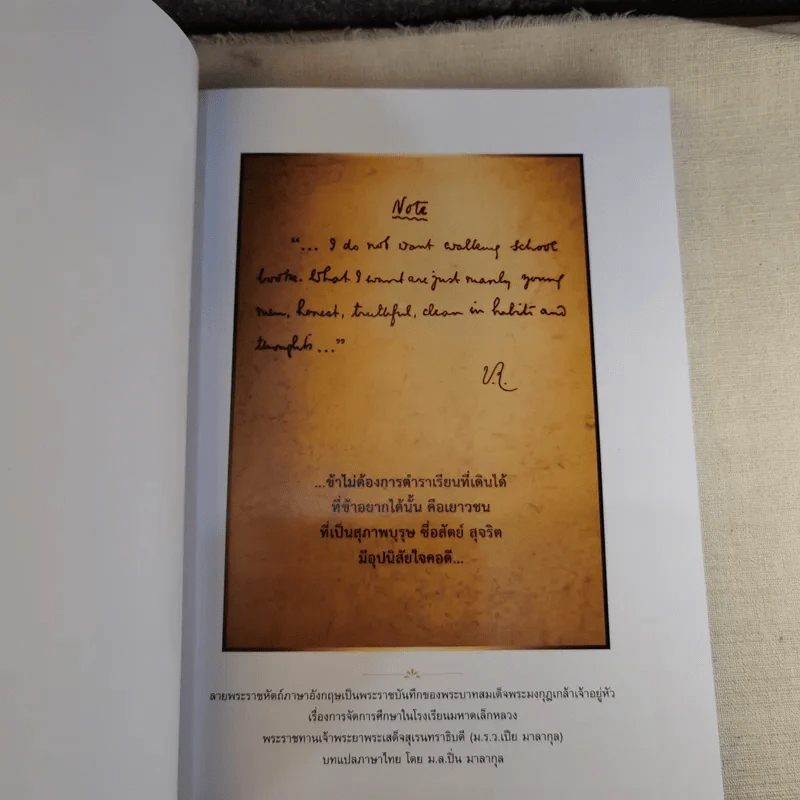 Note
"... I do not want walking school
books. What I want are just manly young
men, honest, truthful, clean in habits and
thoughts ..."
V.R.
...ข้าไม่ต้องการตำราเรียนที่เดินได้
ที่ข้าอยากได้นั้น คือเยาวชน
ที่เป็นสุภาพบุรุษ ซื่อสัตย์ สุจริต
มีอุปนิสัยใจคอดี...
ลายพระราชหัตถ์ภาษาอังกฤษเป็นพระราชบันทึกของพระบาทสมเด็จพระมงกุฎเกล้าเจ้าอยู่หัว
เรื่องการจัดการศึกษาในโรงเรียนมหาดเล็กหลวง
พระราชทานเจ้าพระยาพระเสด็จสุเรนทราธิบดี (ม.ร.ว.เปีย มาลากุล)
บทแปลภาษาไทย โดย ม.ล.ปิ่น มาลากุล